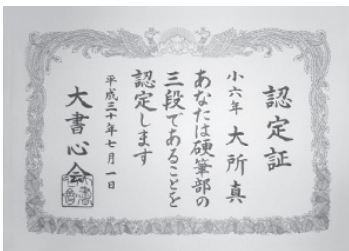 認定証
小六年 大所真
あなたは硬筆部の
三段であることを
認定します
平成三十年七月一日
大書心会